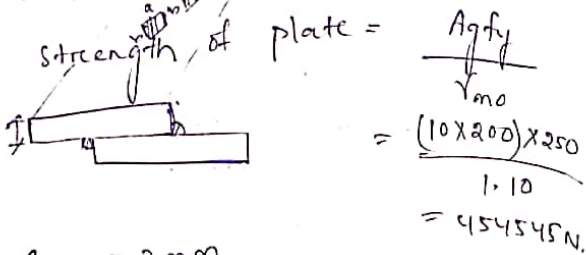 Strength of plate = Agfy / γmo
= (10×200)×250 / 1.10
= 454545 N.